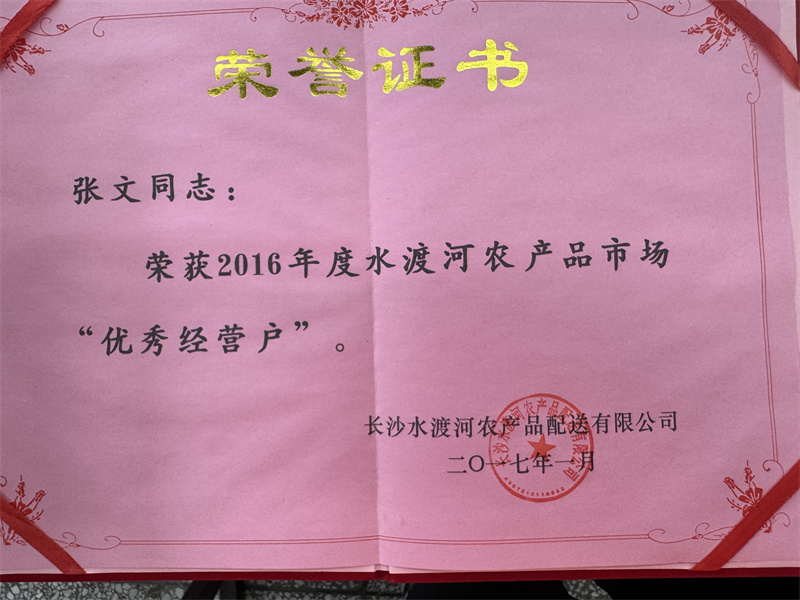 荣誉证书
张文同志：
荣获2016年度水渡河农产品市场
“优秀经营户”。
长沙水渡河农产品配送有限公司
二〇一七年一月
长沙水渡河农产品配送有限公司